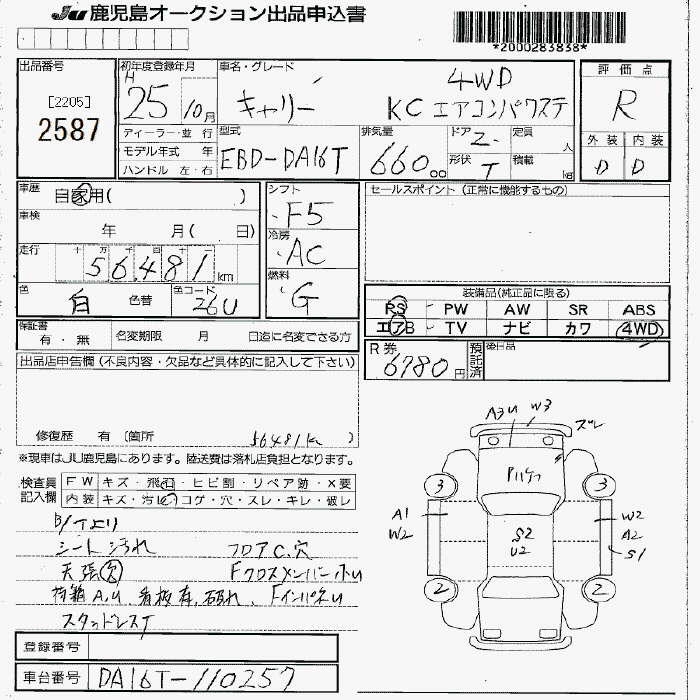 JU 鹿児島オークション出品申込書
*2000283838*
出品番号
[2205]
2587
初年度登録年月
H
25 10月
ディーラー・並 行
モデル年式 年
ハンドル 左・右
車名・グレード
4WD
キャリー KC エアコンパワステ
型式
EBD-DA16T
排気量
660.00
ドア 2
形状 T
定員 人
積載 kg
評価点
R
外装 内装
D D
車歴
自家用( )
車検
年 月( 日)
走行
十 万 千 百 十 一
56,481 km
色
白 色替
色コード
26U
シフト
F5
冷房
AC
燃料
G
セールスポイント (正常に機能するもの)
装備品(純正品に限る)
PS PW AW SR ABS
エアB TV ナビ カワ 4WD
保証書
有・無
名変期限 月 日迄に名変できる方
R券
6780円
預託済
後日品
出品店申告欄 (不良内容・欠品など具体的に記入して下さい)
修復歴 有 〔箇所 56481km )
※現車はJU鹿児島にあります。陸送費は落札店負担となります。
検査員記入欄
FW キズ・飛石・ヒビ割・リペア跡・×要
内装 キズ・汚レ・コゲ・穴・スレ・キレ・破レ
シート汚れ フロアC.穴
天張
Fクロスメンバー小U
荷箱A,U 看板有, FインパネU
スタッドレスT
A3U W3 ズレ
3 3
A1
W2
S2
U2
W2
A2
S1
2 2
登録番号
車台番号 DA16T-110257